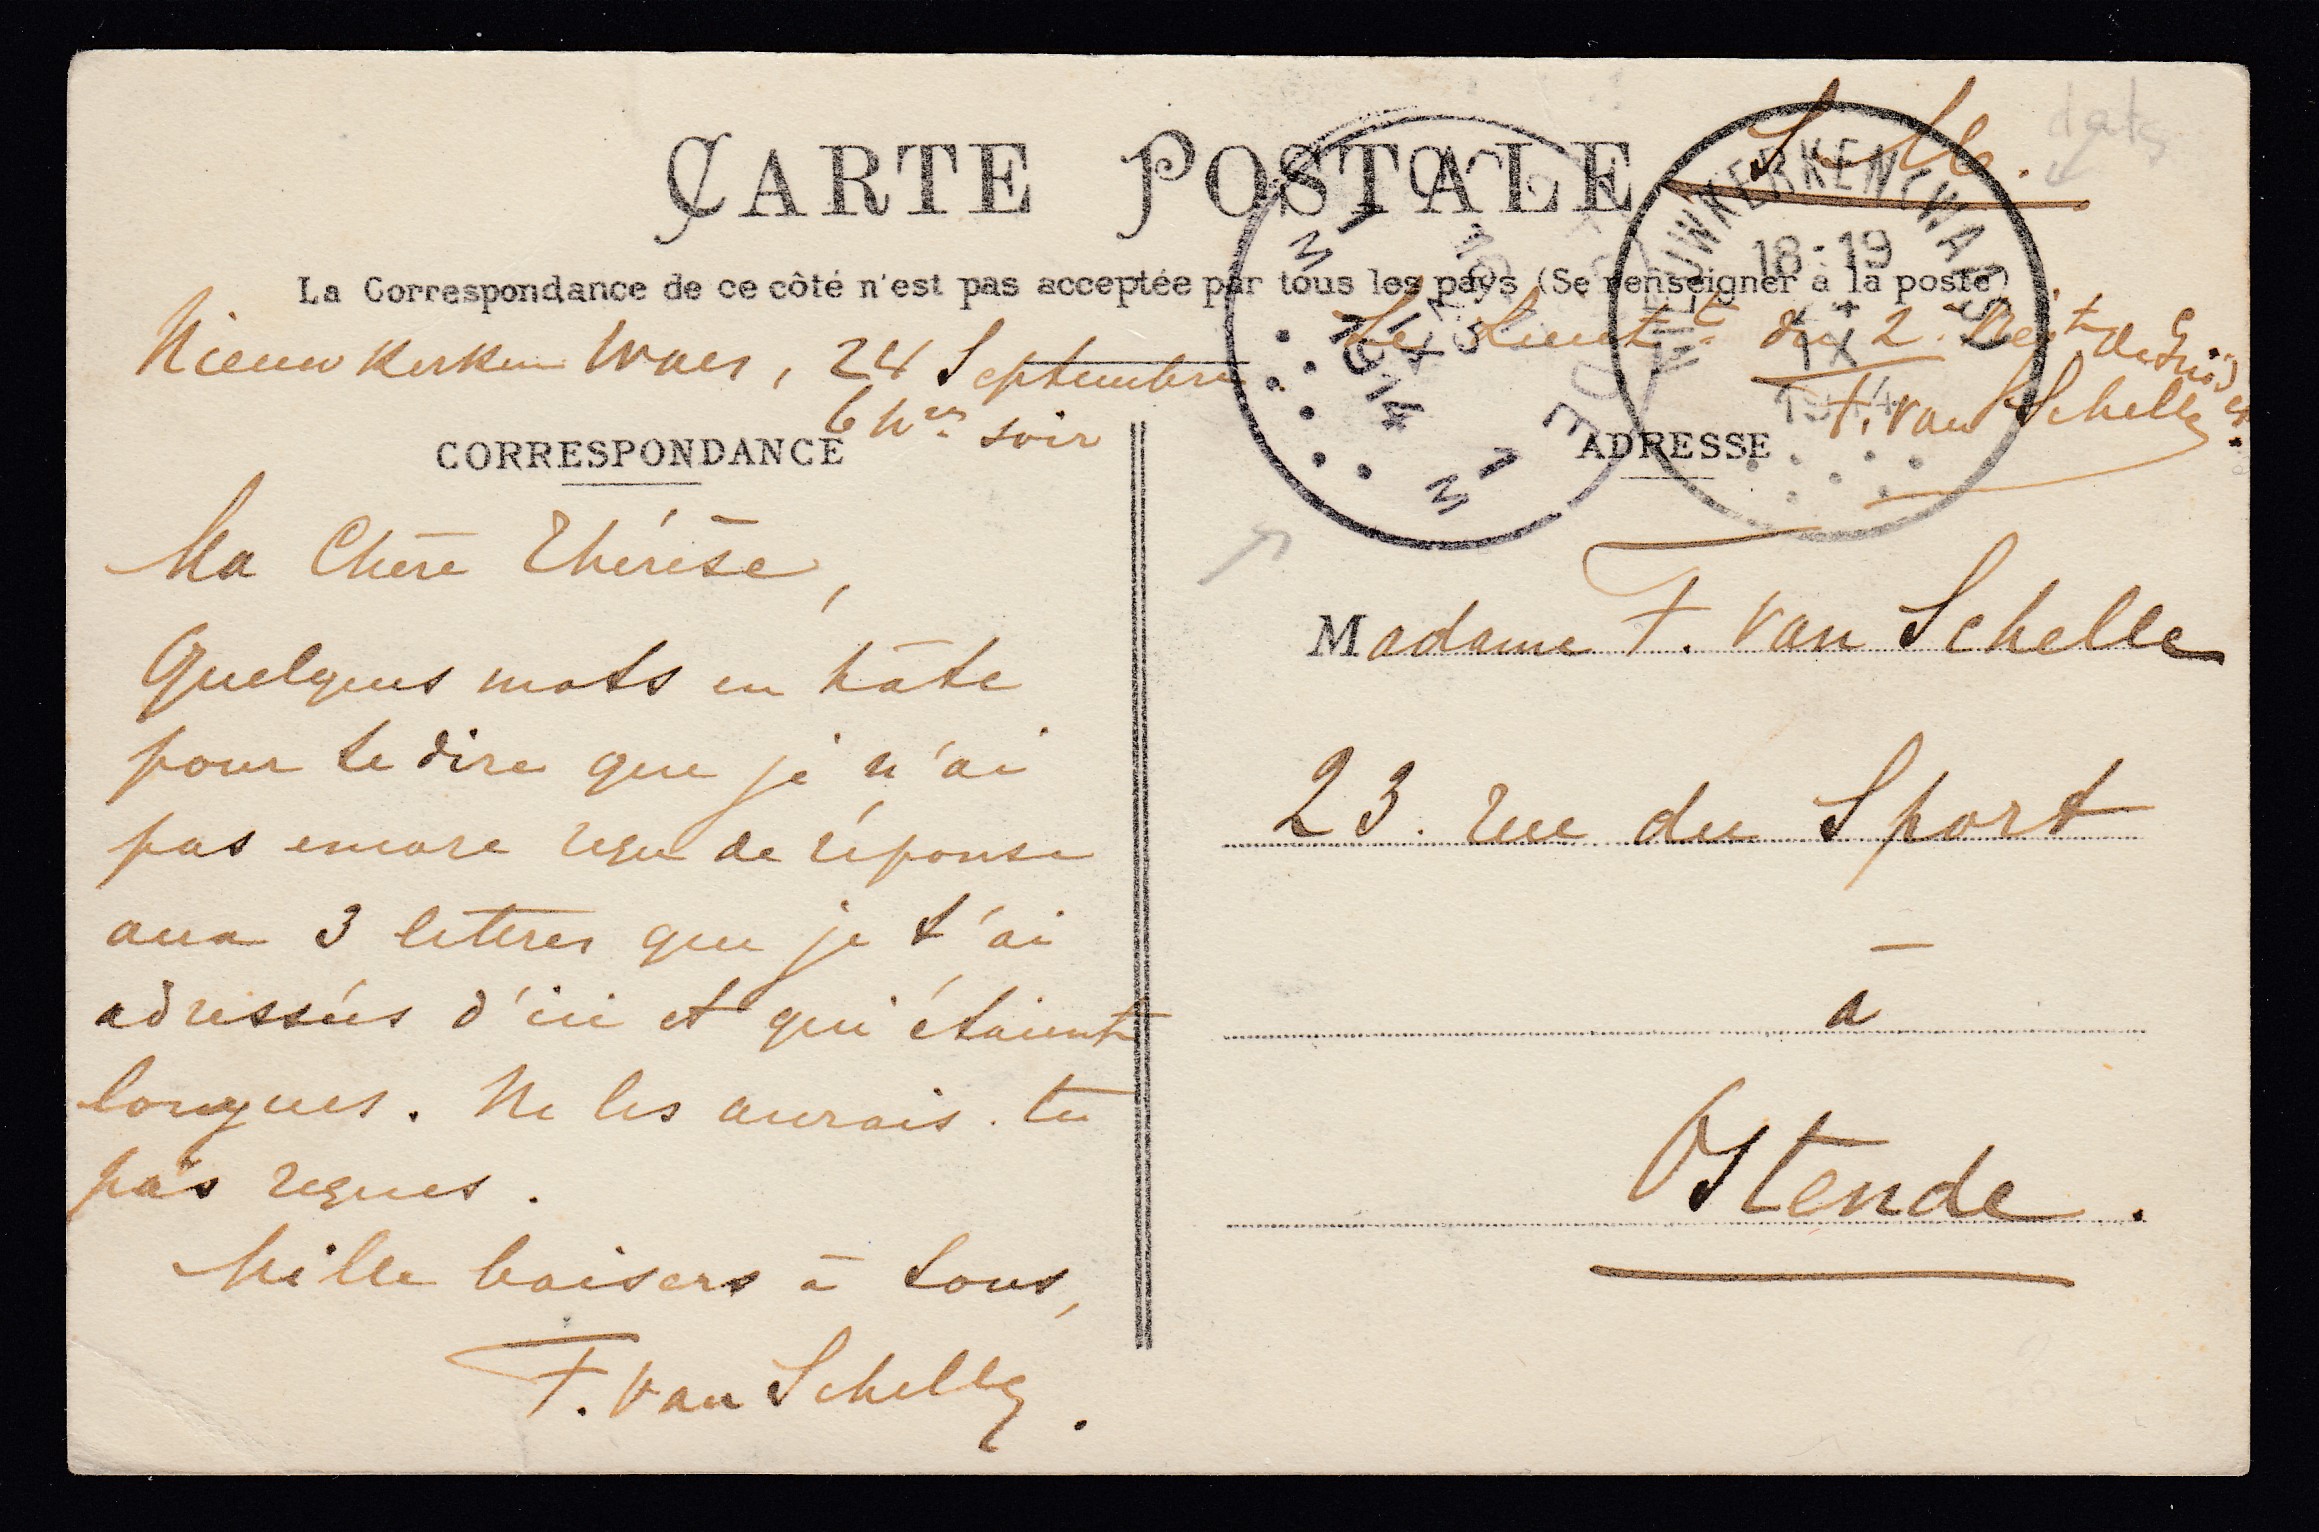 S. M.
dats
CARTE POSTALE
La Correspondance de ce côté n'est pas acceptée par tous les pays (Se renseigner à la poste)
NIEUWKERKEN (WAES)
18-19
IX
1914
Nieuwkerken Waes, 24 Septembre
6 hres soir
Le Lieut.t du 2.
F. van Schelle
CORRESPONDANCE
ADRESSE
Ma Chère Thérèse,
Quelques mots en hâte
pour te dire que je n'ai
pas encore reçu de réponse
aux 3 lettres que je t'ai
adressées d'ici et qui étaient
longues. Ne les aurais-tu
pas reçues.
Mille baisers à tous,
F. van Schelle.
Madame F. van Schelle
23. rue du Sport
à
Ostende.